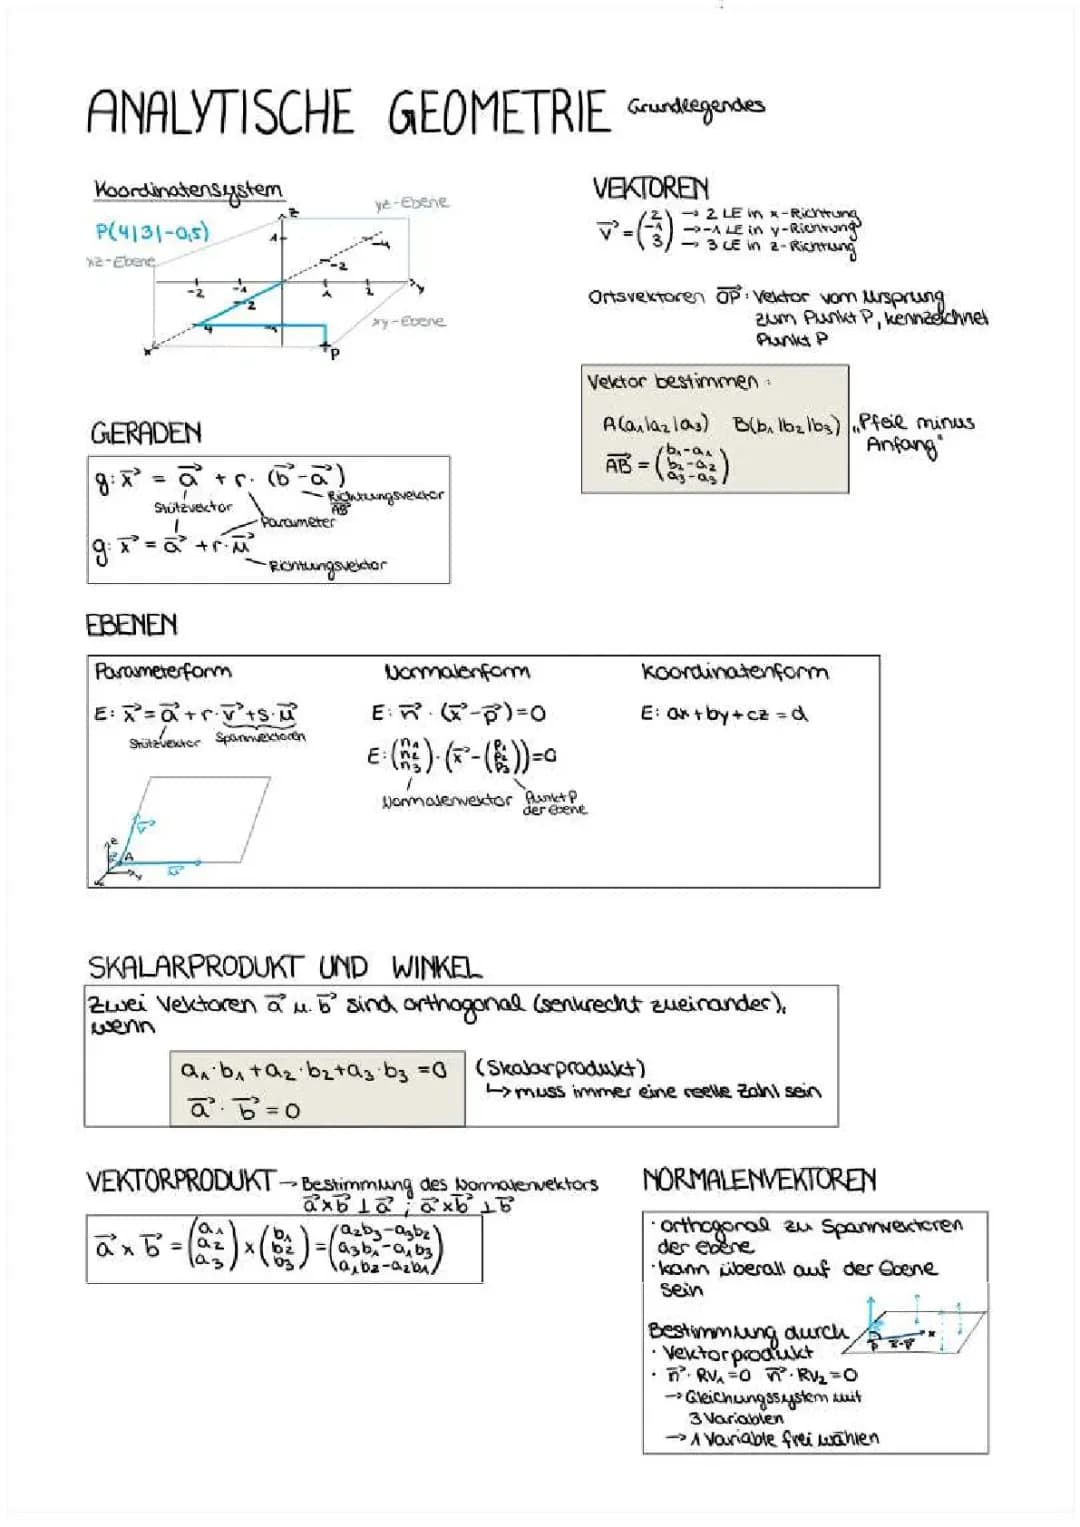 ANALYTISCHE GEOMETRIE Grundlegendes
Koordinatensystem
P(4|3|-0,5)
xz-Ebene
yz-Ebene
xy-Ebene
z
1
-4
-2
-2
-1
1
2
y
2
4
-1
x
P
VEKTOREN
v⃗ = (2 -1 3) → 2 LE in x-Richtung
→ -1 LE in y-Richtung
→ 3 LE in z-Richtung
Ortsvektoren OP⃗: Vektor vom Ursprung
zum Punkt P, kennzeichnet
Punkt P
Vektor bestimmen:
A(a₁|a₂|a₃) B(b₁|b₂|b₃)
AB⃗ = (b₁-a₁ b₂-a₂ a₃-a₃)
„Pfeil minus
Anfang"
GERADEN
g: x⃗ = a⃗ + r · (b⃗ - a⃗)
Stützvektor
Richtungsvektor
AB⃗
Parameter
g: x⃗ = a⃗ + r · u⃗
Richtungsvektor
EBENEN
Parameterform
E: x⃗ = a⃗ + r · v⃗ + s · u⃗
Stützvektor Spannvektoren
z
v⃗
A
a⃗
y
x
u⃗
Normalenform
E: n⃗ · (x⃗ - p⃗) = 0
E: (n₁ n₂ n₃) · (x⃗ - (p₁ p₂ p₃)) = 0
Normalenvektor Punkt P
der Ebene
Koordinatenform
E: ax + by + cz = d
SKALARPRODUKT UND WINKEL
Zwei Vektoren a⃗ u. b⃗ sind orthogonal (senkrecht zueinander),
wenn
a₁·b₁ + a₂·b₂ + a₃·b₃ = 0
a⃗ · b⃗ = 0
(Skalarprodukt)
↳ muss immer eine reelle Zahl sein
VEKTORPRODUKT → Bestimmung des Normalenvektors
a⃗×b⃗ ⊥ a⃗ ; a⃗×b⃗ ⊥ b⃗
a⃗ × b⃗ = (a₁ a₂ a₃) × (b₁ b₂ b₃) = (a₂b₃-a₃b₂ a₃b₁-a₁b₃ a₁b₂-a₂b₁)
NORMALENVEKTOREN
· orthogonal zu Spannvektoren
der Ebene
· kann überall auf der Ebene
sein
Bestimmung durch
· Vektorprodukt
P x⃗-p⃗ x
· n⃗ · RV₁ = 0 n⃗ · RV₂ = 0
→ Gleichungssystem mit
3 Variablen
→ 1 Variable frei wählen